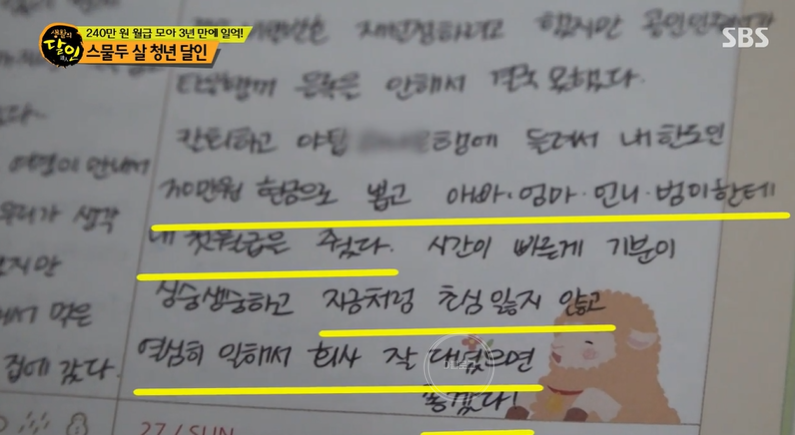 생활의 달인
240만 원 월급 모아 3년 만에 일억!
스물두 살 청년 달인
SBS
재신청하려고 했지만
안해서 결국 못했다.
칸퇴하고 야탑 행에 들러서 내 한도인
여행이 안내서
30만원 현금으로 뽑고 아빠·엄마·언니·범미한테
우리가 생각
내 첫월급은 줬다. 시간이 빠른게 기분이
싱숭생숭하고 지금처럼 초심 잃지 않고
에서 먹은
열심히 일해서 회사 잘 다녔으면
집에 갔다.
좋겠다!
27 / SUN